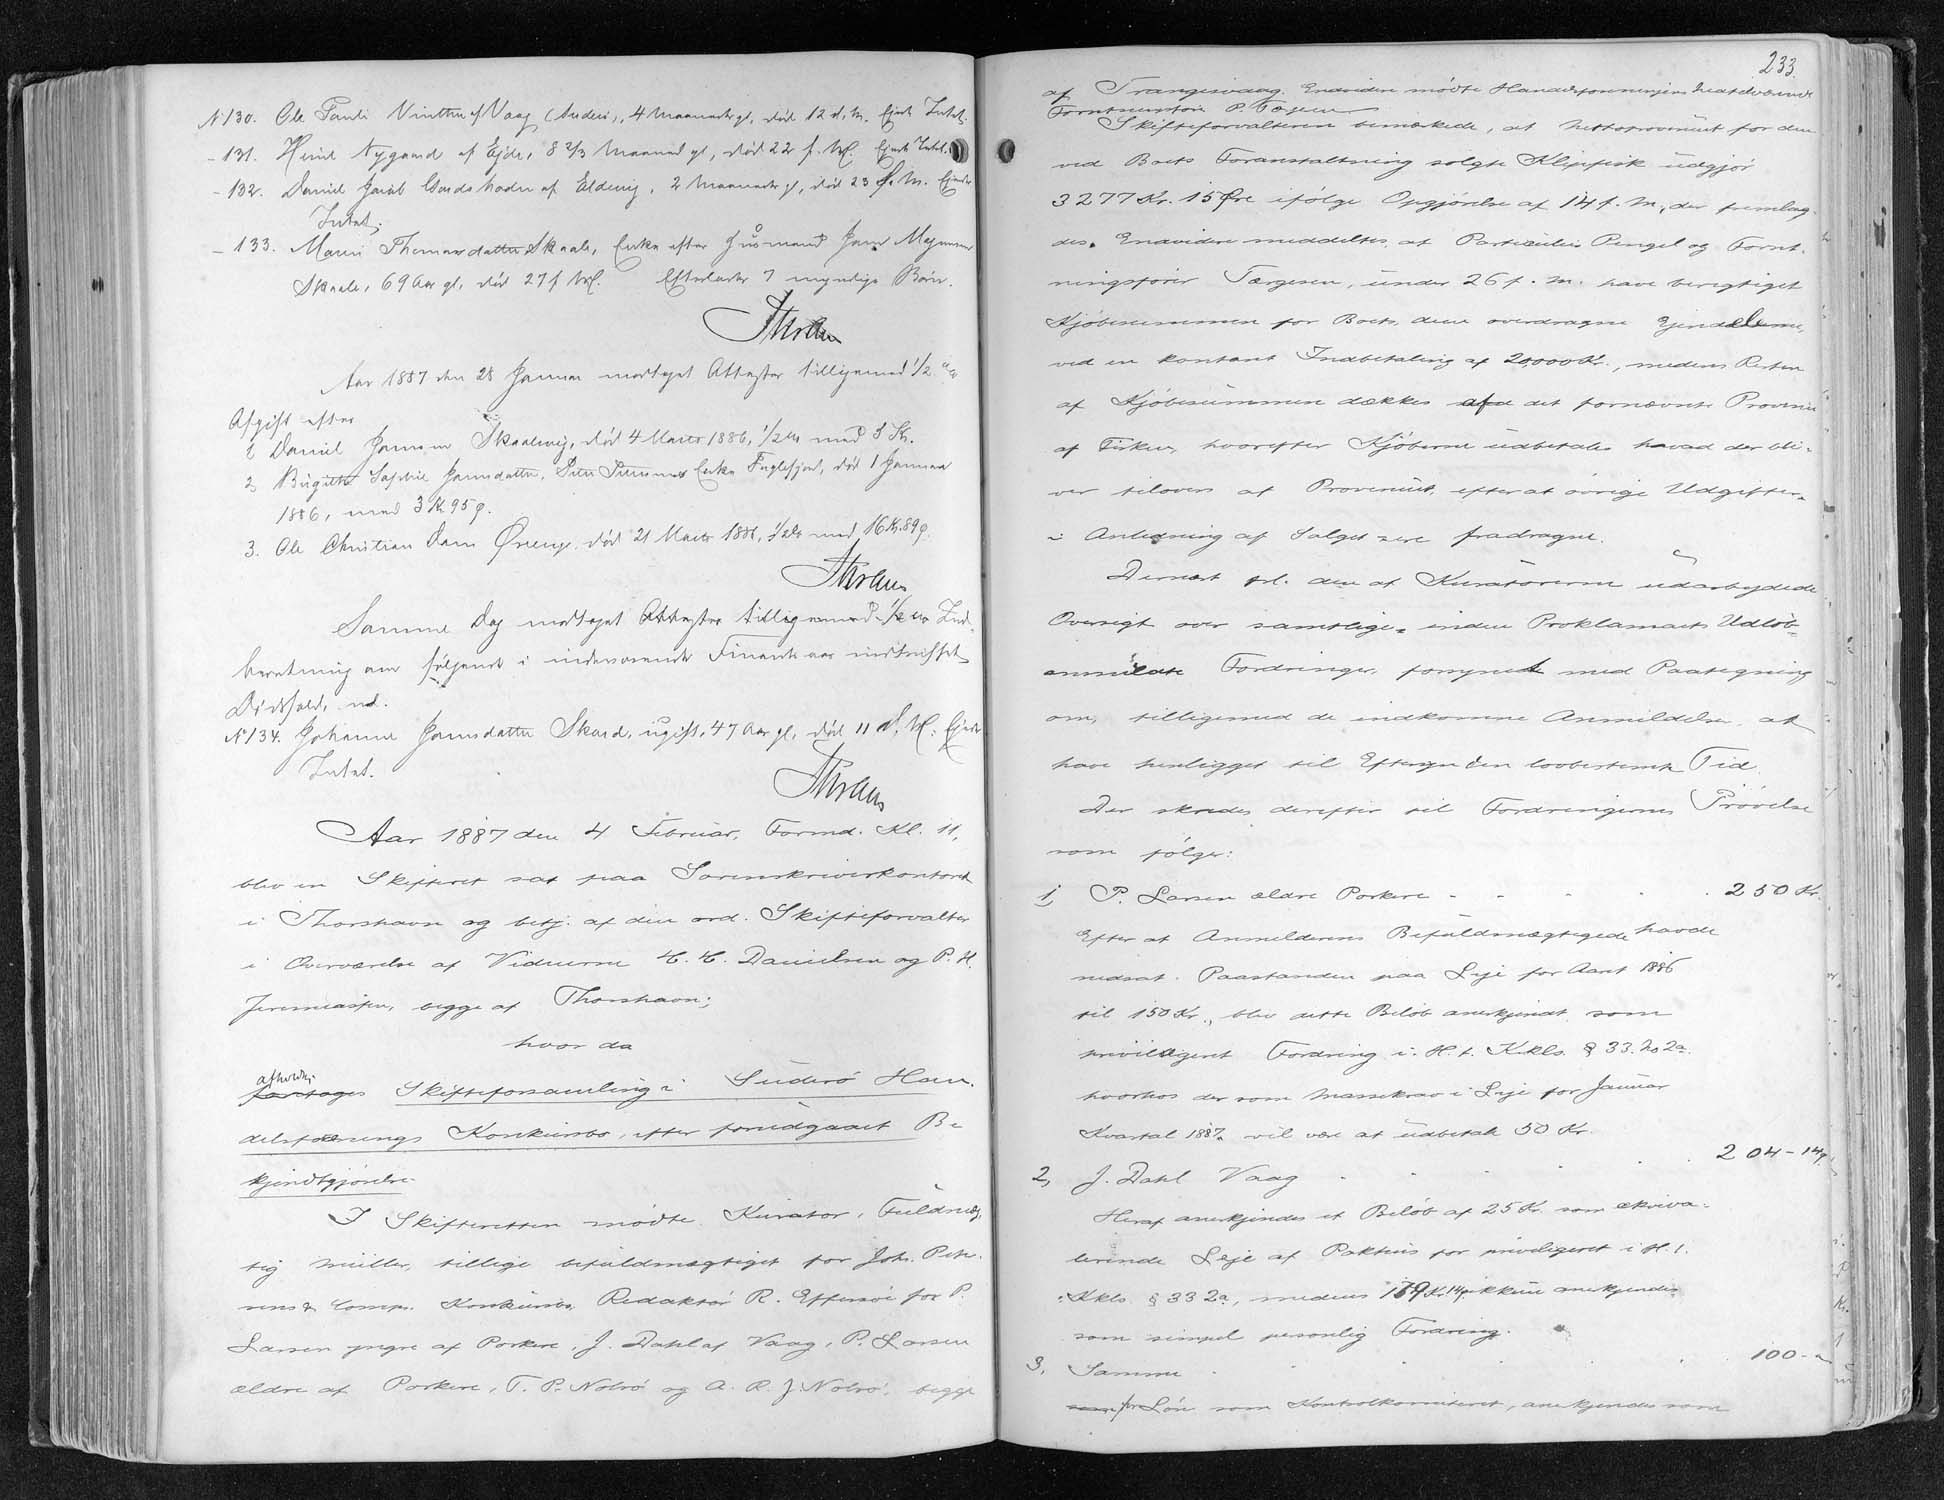 No 130. Ole Pauli Vinther af Vaag (Suderø), 4 Maaneder gl, død 12 d. M. Ejede Intet.
- 131. Nygaard af Ejde, 8 2/3 Maaned gl, død 22 f. M. Ejede Intet.
- 132. Daniel Jacob af Eldevig, 2 Maaneder gl, død 23 f. M. Ejede
Intet.
- 133. Maren Thomasdatter Skaale, Enke efter Husmand
Skaale, 69 Aar gl, død 27 f. M. Efterlader 7 myndige Børn.
Aar 1887 den 28 Januar modtaget Attester tilligemed 1/2
Afgift efter
1, Daniel Skaalevig, død 4 Marts 1886, med 3 Kr.
2, Birgitte Sophie Joensdatter, Enke Fuglefjord, død 1 Januar
1886, med 3 Kr 95 ø.
3. Ole Christian Dam død 21 Marts 1886, med 16 Kr. 89 ø.
Samme Dag modtaget Attester tilligemed Ind-
beretning om følgende i indeværende Finantsaar indtrufne
Dødsfald,
No 134. Johanne Joensdatter Skard, ugift, 47 Aar gl, død 11 d. M. Ejede
Intet.
Aar 1887 den 4 Februar, Formd. Kl. 11,
blev en Skifteret sat paa Sorenskriverkontoret
i Thorshavn og betj. af den ord. Skifteforvalter
i Overværelse af Vidnerne H. H. Danielsen og P. H.
Jeremiasen, begge af Thorshavn;
hvor da
afholdes
foretages Skifteforsamling i Suderø Han-
delsforenings Konkursbo, efter forudgaaet Be-
kjendtgjørelse.
I Skifteretten mødte Kurator, Fuldmæg-
tig Müller, tillige befuldmægtiget for Joh. Peter-
sens & Comp. Konkursbo, Redaktør R. Effersøe for P.
Larsen yngre af Porkere, J. Dahl af Vaag, P. Larsen
ældre af Porkere, T. P. Nolsø og A. R. J. Nolsø, begge
233.
af Trangisvaag. Endvidere mødte Handelsforeningens
P. Tærgesen
Skifteforvalteren bemærkede, at Nettoprovenuet for den
ved Boets Foranstaltning solgte Klipfisk udgjør
3277 Kr. 15 Øre ifølge Opgjørelse af 14 f. M., der fremlag-
des. Endvidere meddeltes, at Particulier Pengel og Forret-
ningsfører Tærgesen, under 26 f. M. have berigtiget
Kjøbesummen for Boets dem overdragne Ejendomme,
ved en kontant Indbetaling af 20,000 Kr., medens Resten
af Kjøbesummen dækkes af det fornævnte Provenu
af Fisken, hvorefter Kjøberne udbetales hvad der bli-
ver tilovers af Provenuet, efterat øvrige Udgifter
i Anledning af Salget ere fradragne.
Dernæst frl. den af Kuratorerne udarbejdede
Oversigt over samtlige inden Proklamaets Udløb
anmeldte Fordringer, forsynet med Paategning
om, tilligemed de indkomne Anmeldelser, at
have henligget til Eftersyn den lovbestemte Tid.
Der skredes derefter til Fordringernes Prøvelse
som følger:
1, P. Larsen ældre Porkere - - - - 250 Kr.
Efter at Anmelderens Befuldmægtigede havde
nedsat Paastanden paa Leje for Aaret 1886
til 150 Kr., blev dette Beløb anerkjendt som
privilegeret Fordring i H. t. Kkls. § 33. No 2a.
hvorhos der som Massekrav i Leje for Januar
Kvartal 1887 vil være at udbetale 50 Kr.
2, J. Dahl Vaag - - - 204 - 14ø
Heraf anerkjendes et Beløb af 25 Kr. som ækviva-
lerende Leje af Pakhus for privilegeret i H. t.
Kkls. § 33 2a, medens 179 Kr. 14 ø. ikkun anerkjendes
som simpel personlig Fordring.
3. Samme - - - 100 - "
for Løn som Kontrolkomiteret, anerkjendes som